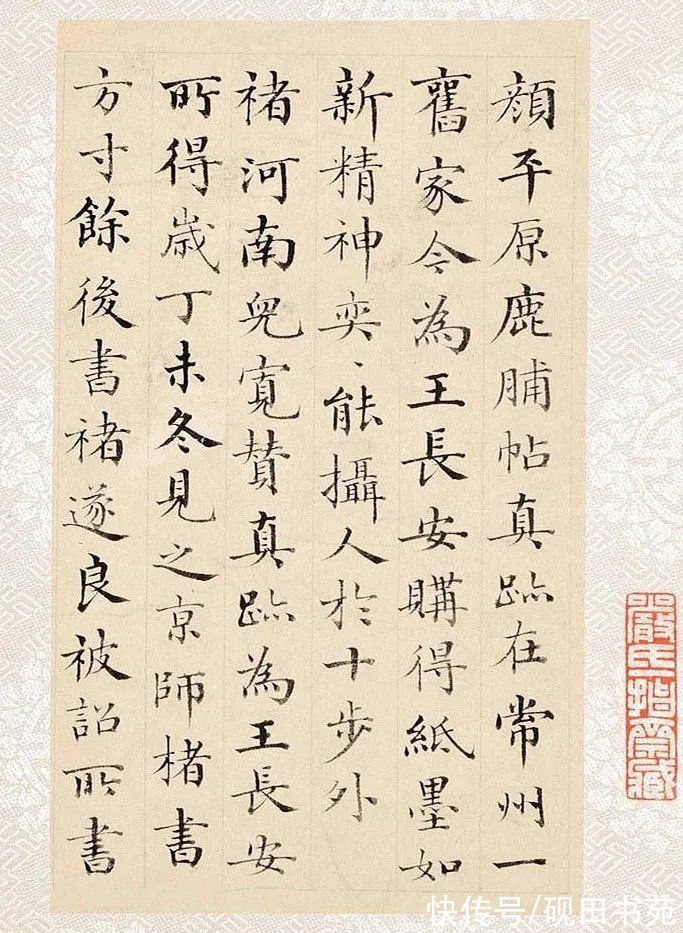 顔平原鹿脯帖真跡在常州一
舊家今為王長安購得紙墨如
新精神奕〻能攝人於十步外
褚河南兒寛賛真跡為王長安
所得歳丁未冬見之京師楮書
方寸餘後書褚遂良被詔所書
快传号/砚田书苑